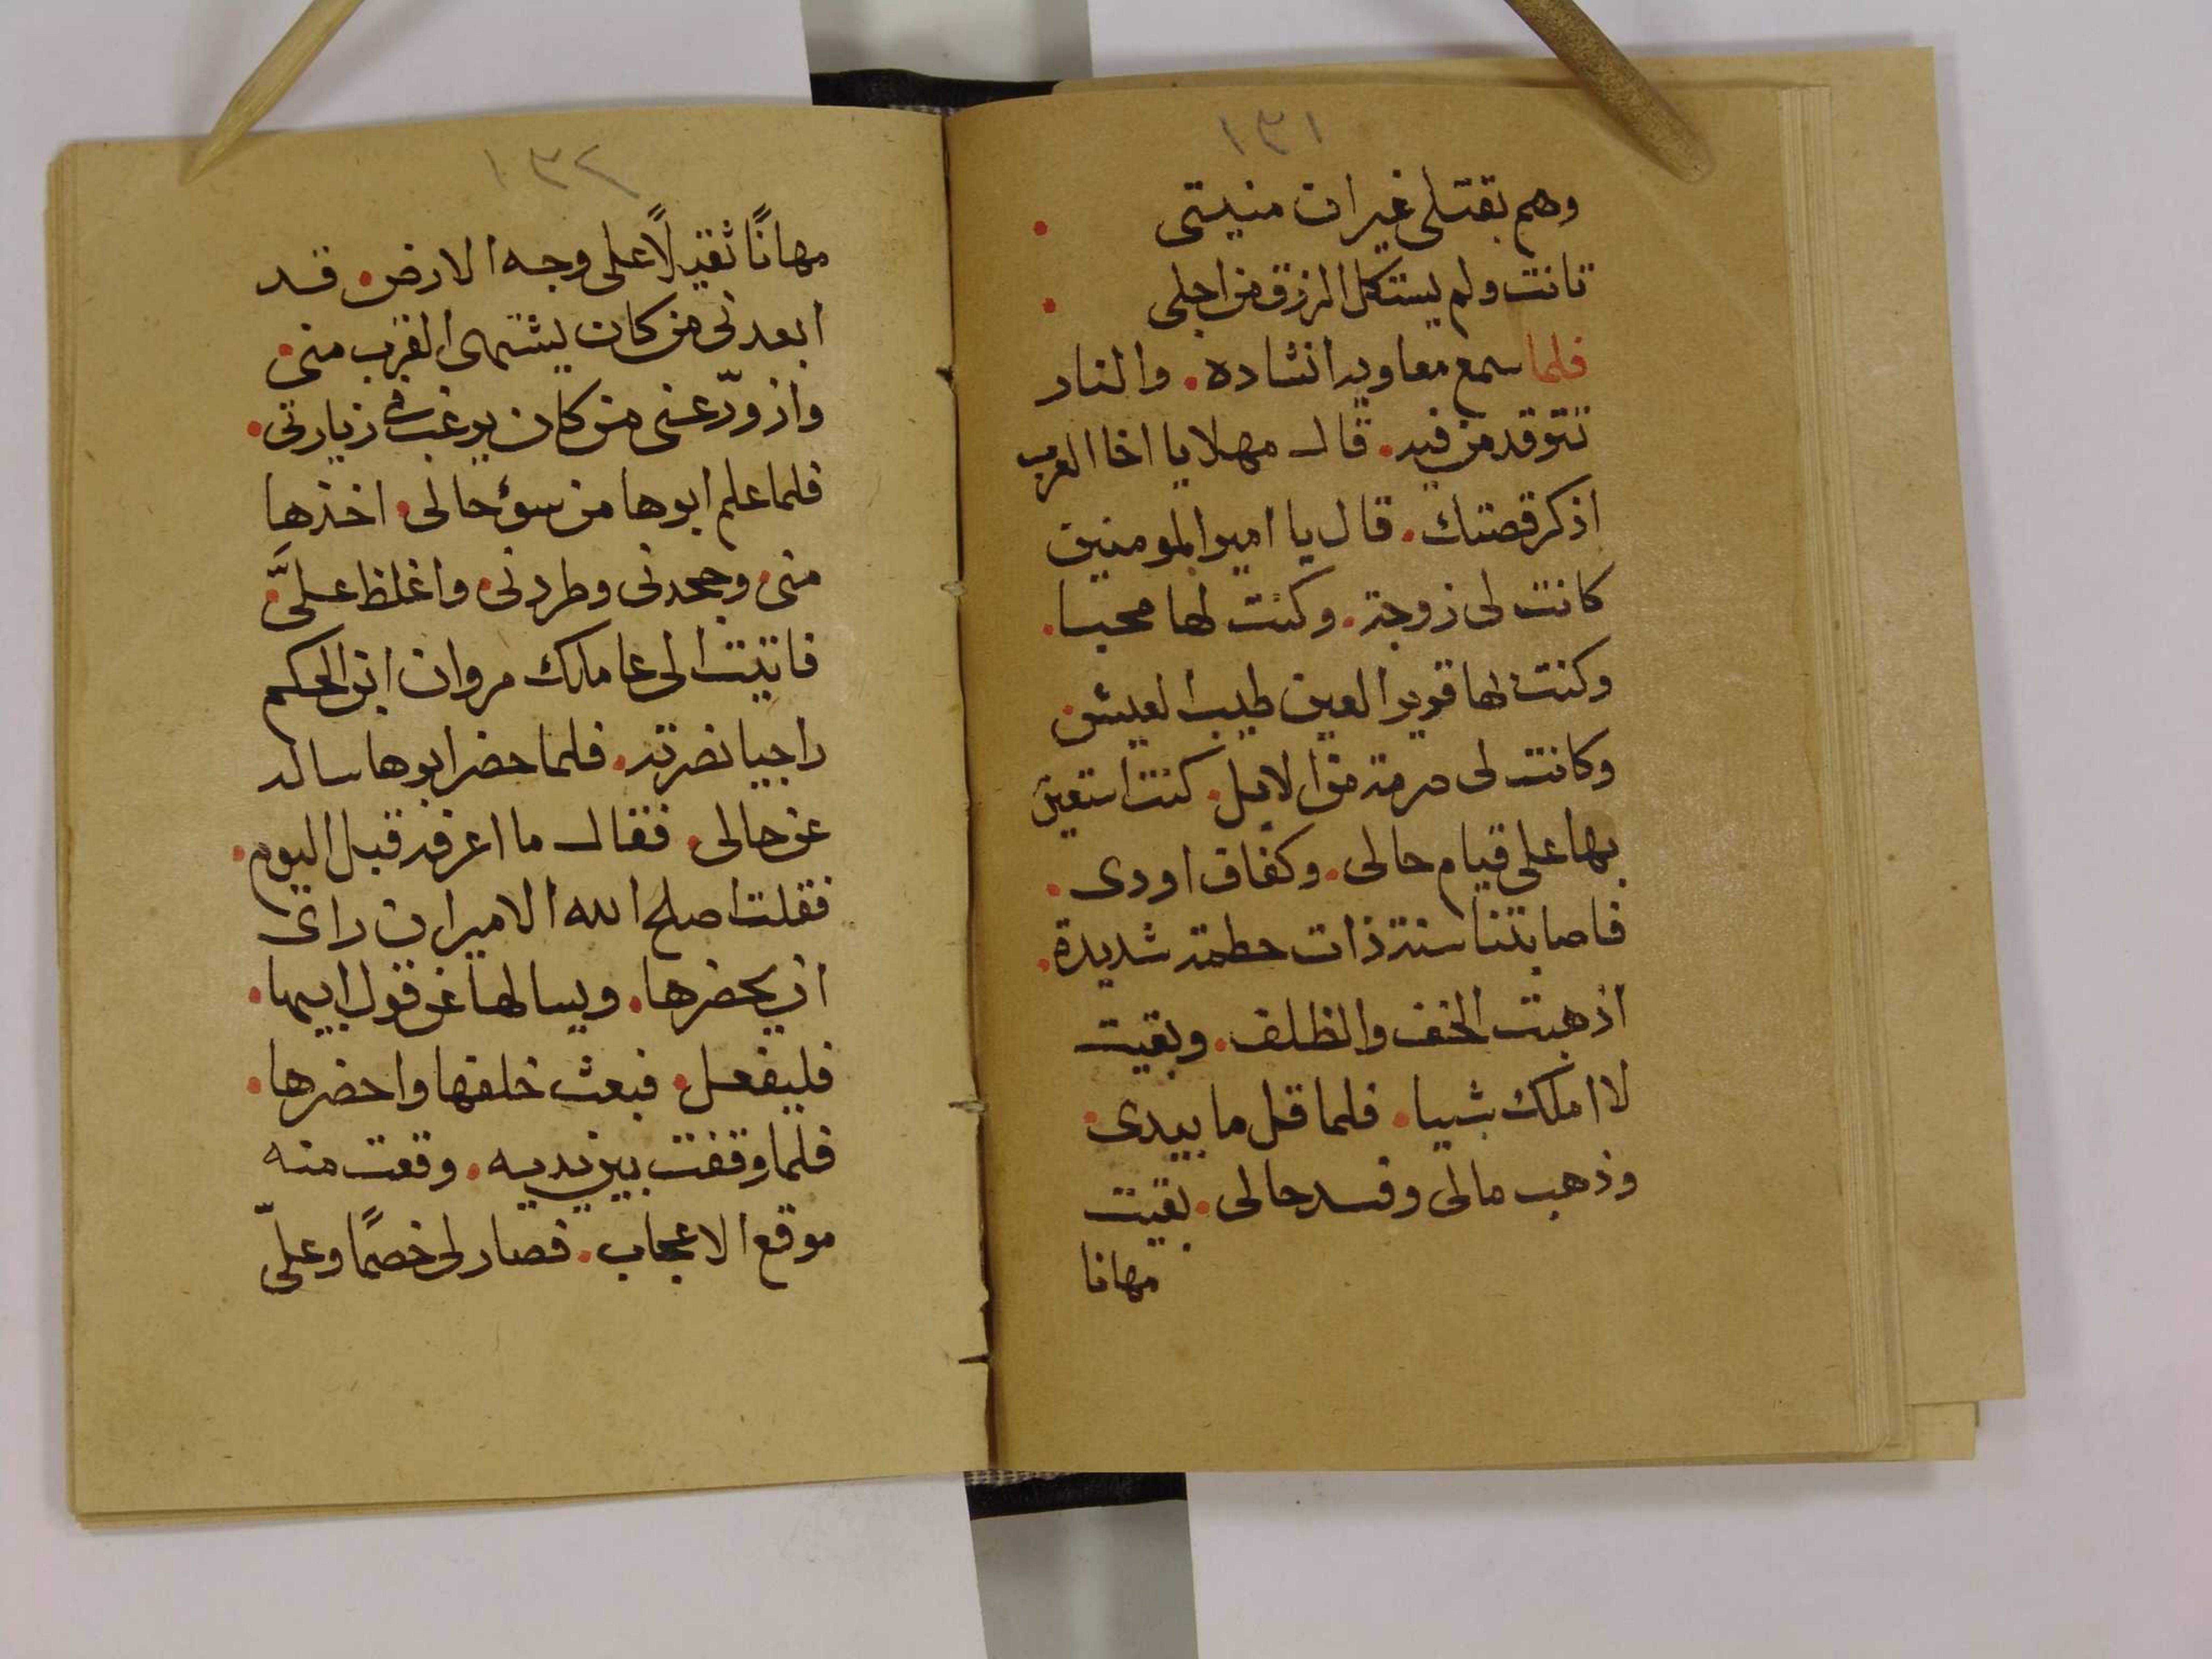 ١٣١
وهم بقتلى غير ان منيتى
تانت ولم يستكمل الرزق من اجلى
فلما سمع معاويه انشاده. والنار
تتوقد من فيه. قال مهلا يا اخا العرب
اذكر قصتك. قال يا امير المومنين
كانت لى زوجة. وكنت لها محبا.
وكنت لها قرير العين طيب العيش.
وكانت لى صرمة من الابل. كنت استعين
بها على قيام حالى. وكفاف اودى.
فاصابتنا سنة ذات حطمة شديدة.
اذهبت الخف والظلف. وبقيت
لا املك شيا. فلما قل ما بيدى.
وذهب مالى وفسد حالى. بقيت
مهانا
١٣٢
مهانًا ثقيلًا على وجه الارض. قد
ابعدنى من كان يشتهى القرب منى.
وازورّ عنى من كان يرغب فى زيارتى.
فلما علم ابوها من سوء حالى. اخذها
منى. وجحدنى وطردنى. واغلظ علىَّ.
فاتيت الى عاملك مروان ابن الحكم
راجيا نصرته. فلما حضر ابوها ساله
عن حالى. فقال ما اعرفه قبل اليوم.
فقلت اصلح الله الامير ان راى
ان يحضرها. ويسالها عن قول ابيها.
فليفعل. فبعث خلفها واحضرها.
فلما وقفت بين يديه. وقعت منه
موقع الاعجاب. فصار لى خصمًا وعلىّ